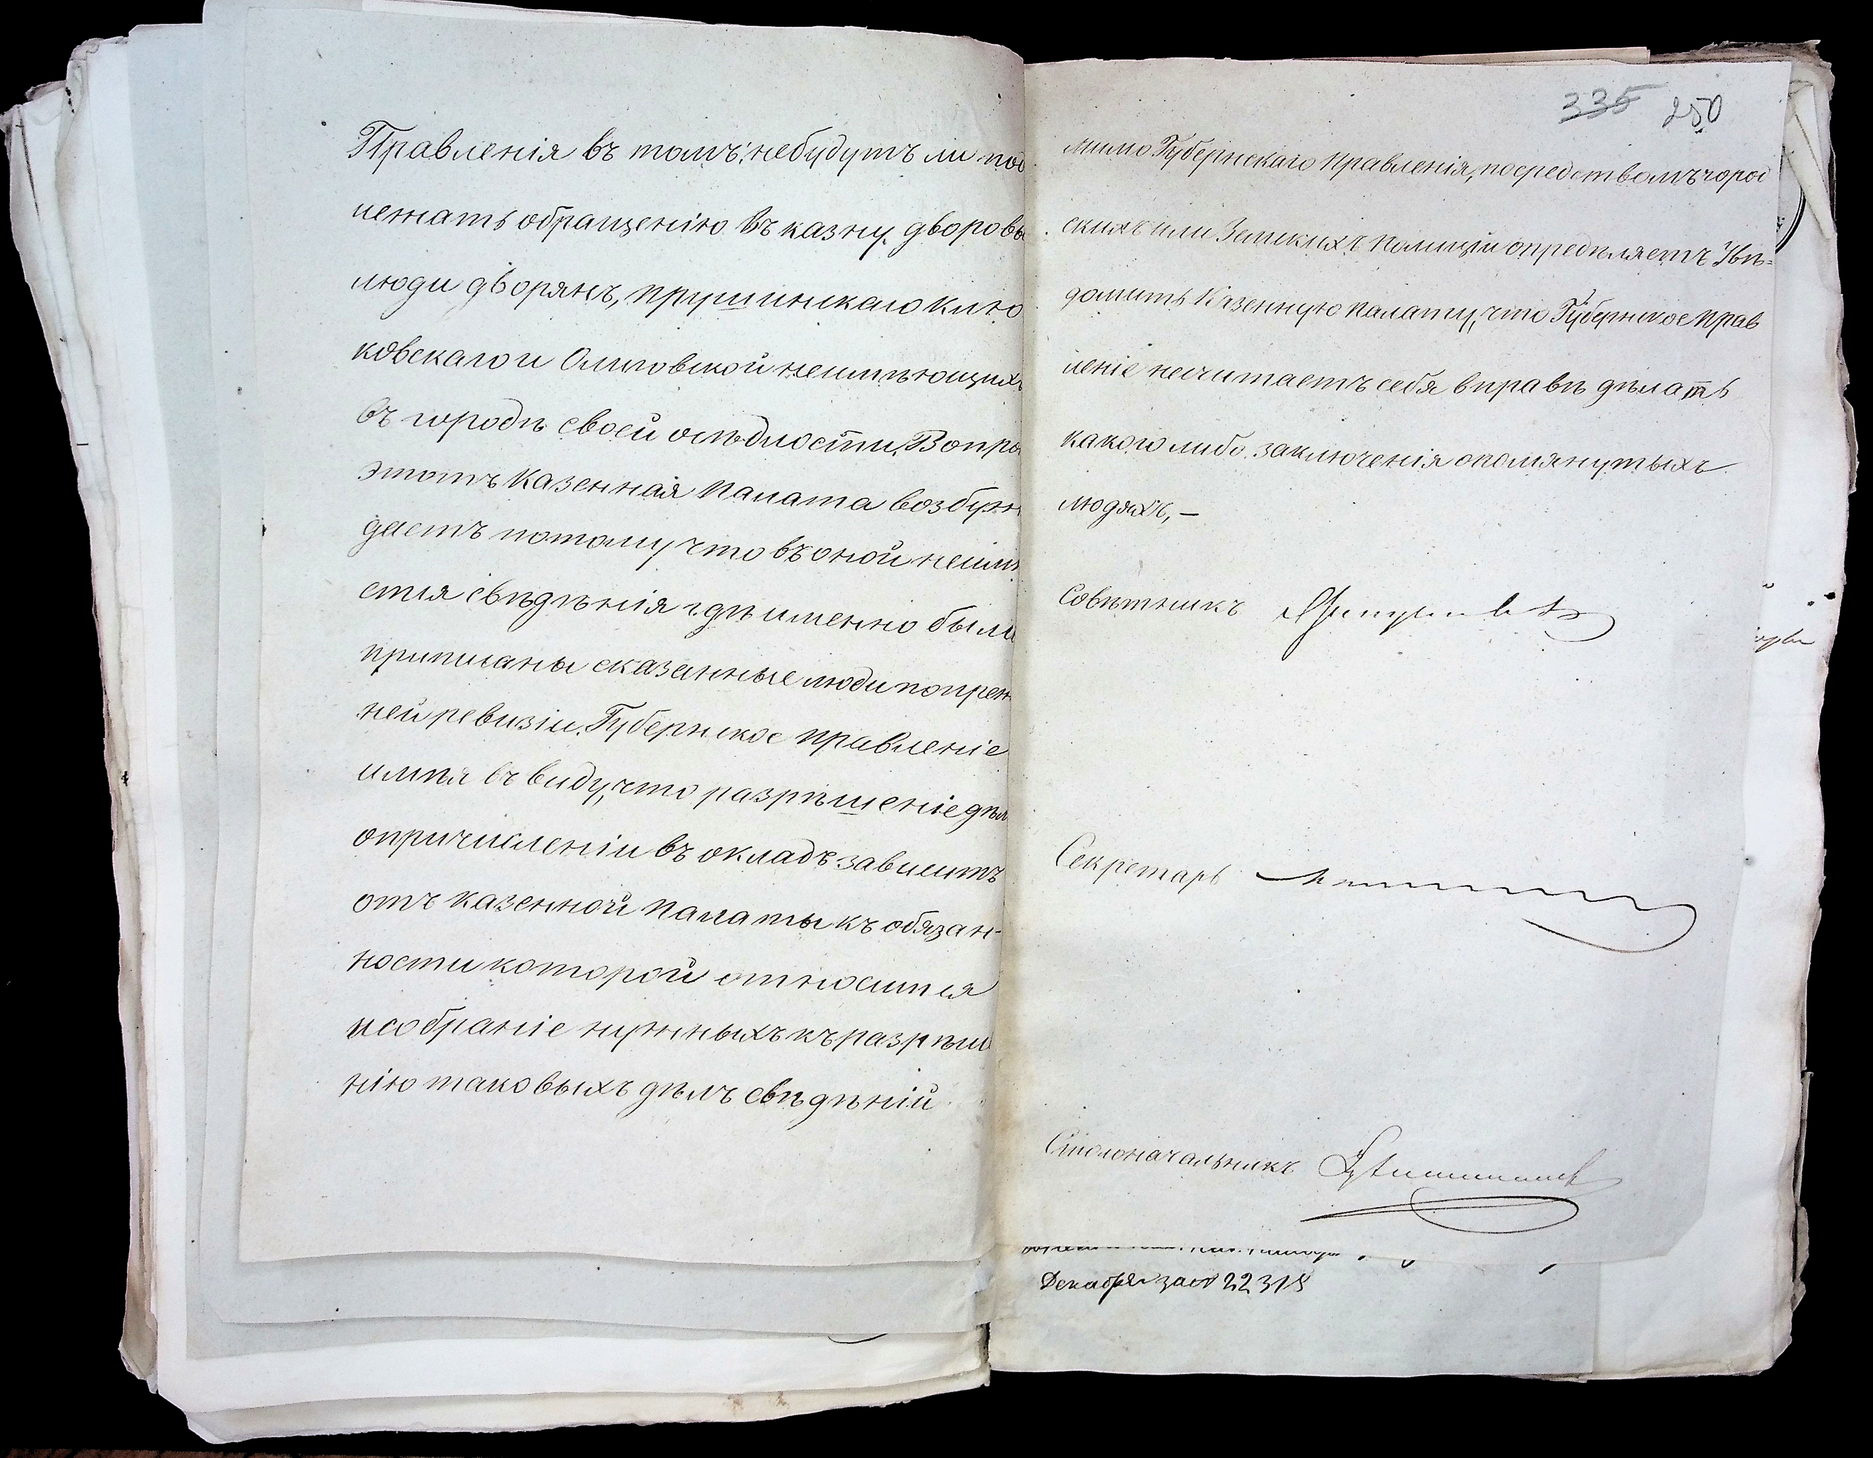 Правленія въ томъ, небудутъ ли под
лежать обращенію въ казну дворовы
люди дворянъ, Прушинскаго Клю
ковскаго и Олиговской неимѣющихъ
въ городѣ своей осѣдлости, Вопро
этотъ Казенная Палата возбуж
даетъ потому что въ оной неимѣ
ется свѣдѣнія гдѣ именно были
приписаны сказанные люди попреж
ней ревизіи. Губернское Правленіе
имѣя въ виду, что разрѣшеніе дѣл
опричисленіи въ окладъ зависитъ
отъ Казенной Палаты къ обязан-
ности которой относится
и собраніе нужныхъ къ разрѣше
нію таковыхъ дѣлъ свѣдѣній
335 250
мимо Губернскаго Правленія, посредствомъ город
скихъ или Земскихъ Полицій опредѣляетъ Увѣ=
домить Казенную Палату, что Губернское Прав
леніе несчитаетъ себя вправѣ дѣлать
какого либо заключенія опомянутыхъ
людяхъ, —
Совѣтникъ
Секретарь
Столоначальникъ
Декабря за № 22318